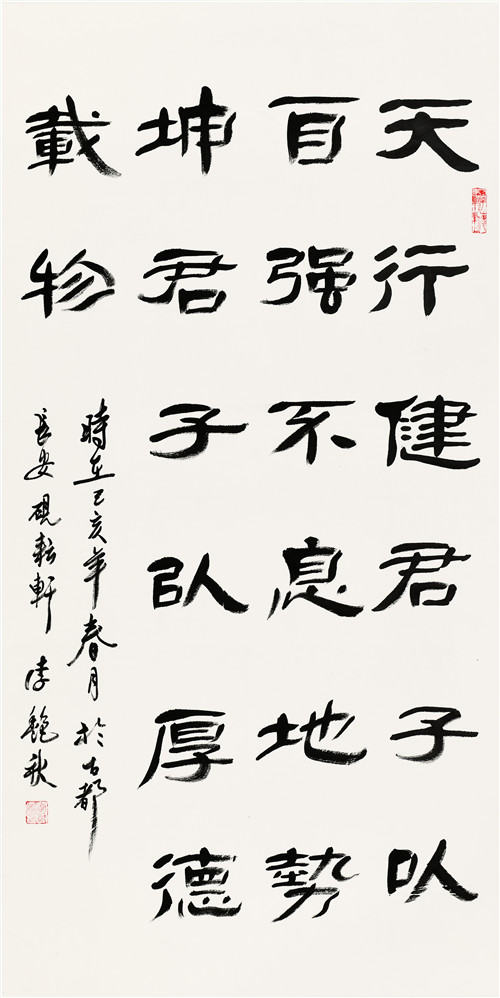 天行健君子㕥
自强不息地勢
坤君子㕥厚德
載物
時在己亥年春月於古都
長安硯耘軒 李艶秋